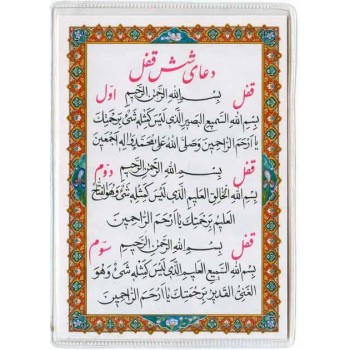 دعای شش قفل
قفل اول بِسْمِ اللهِ الرَّحْمٰنِ الرَّحیمِ
بِسْمِ اللهِ السَّمیعِ الْبَصیرِ الَّذی لَیْسَ کَمِثْلِهِ شَیْءٌ بِرَحْمَتِکَ
یا اَرْحَمَ الرّاحِمینَ وَ صَلَّی اللهُ عَلی مُحَمَّدٍ وَ الِهِ اَجْمَعینَ
قفل دوم بِسْمِ اللهِ الرَّحْمٰنِ الرَّحیمِ
بِسْمِ اللهِ الْخالِقِ الْعَلیمِ الَّذی لَیْسَ کَمِثْلِهِ شَیْءٌ وَ هُوَ الْفَتّاحُ
الْعَلیمُ بِرَحْمَتِکَ یا اَرْحَمَ الرّاحِمینَ
قفل سوم بِسْمِ اللهِ الرَّحْمٰنِ الرَّحیمِ
بِسْمِ اللهِ السَّمیعِ الْعَلیمِ الَّذی لَیْسَ کَمِثْلِهِ شَیْءٌ وَ هُوَ
الْغَنِیُّ الْقَدیرُ بِرَحْمَتِکَ یا اَرْحَمَ الرّاحِمینَ